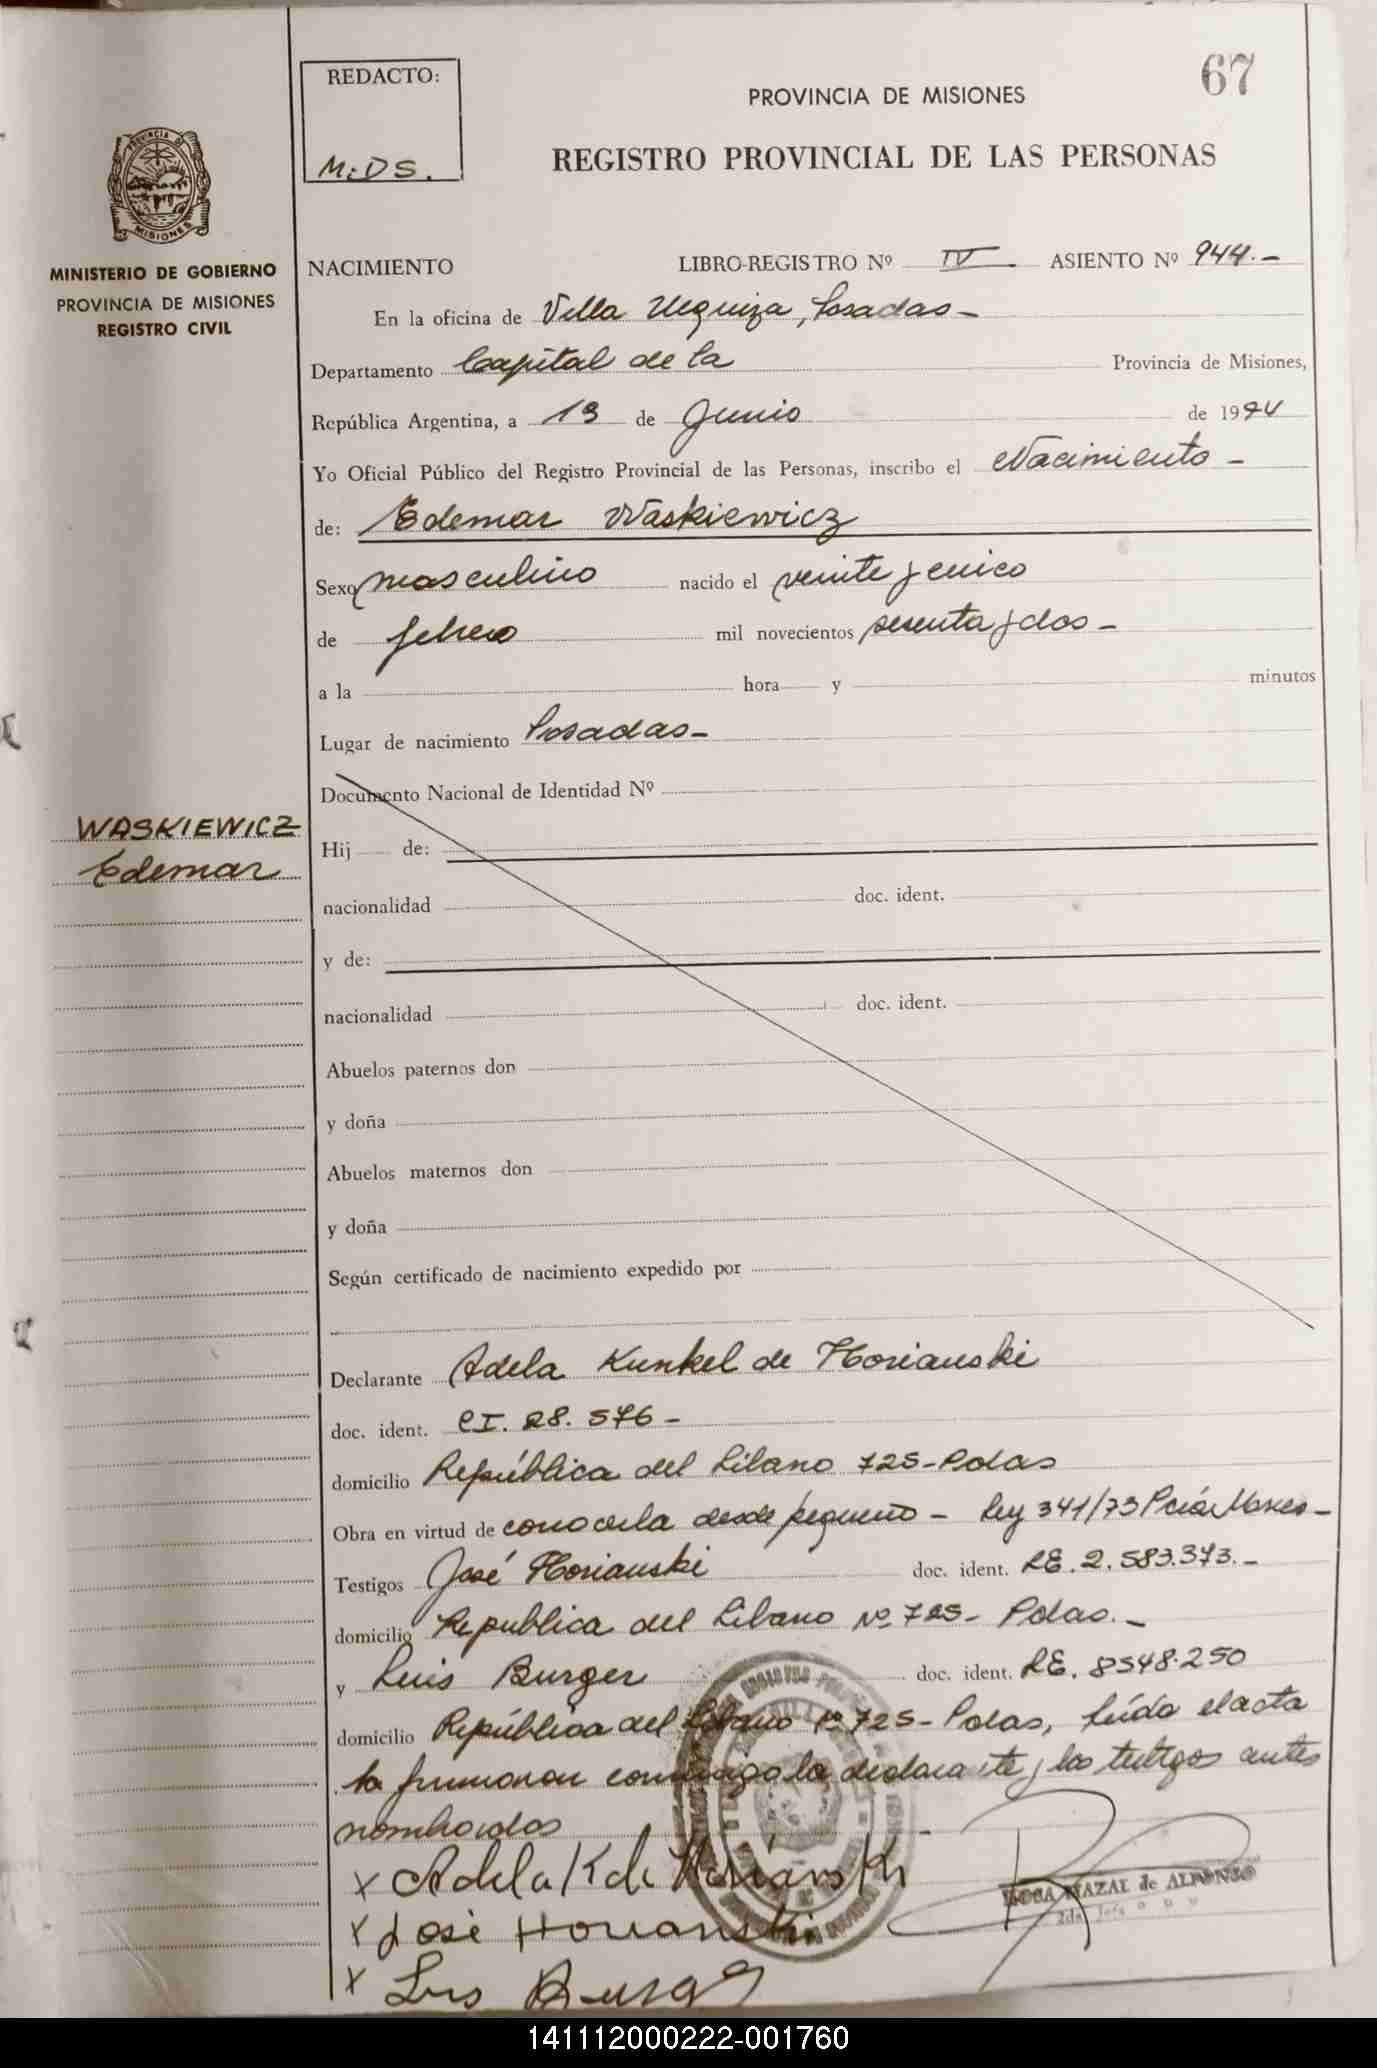 67
REDACTO:
M. DS.
PROVINCIA DE MISIONES
REGISTRO PROVINCIAL DE LAS PERSONAS
PROVINCIA DE
MISIONES
MINISTERIO DE GOBIERNO
PROVINCIA DE MISIONES
REGISTRO CIVIL
NACIMIENTO LIBRO-REGISTRO Nº IV ASIENTO Nº 944.-
En la oficina de Villa Urquiza, Posadas-
Departamento Capital de la Provincia de Misiones,
República Argentina, a 13 de Junio de 1974
Yo Oficial Público del Registro Provincial de las Personas, inscribo el Nacimiento -
de: Edemar Waskiewicz
Sexo masculino nacido el veinte y cinco
de febrero mil novecientos sesenta y dos -
a la hora y minutos
Lugar de nacimiento Posadas-
Documento Nacional de Identidad Nº
WASKIEWICZ
Edemar
Hij de:
nacionalidad doc. ident.
y de:
nacionalidad doc. ident.
Abuelos paternos don
y doña
Abuelos maternos don
y doña
Según certificado de nacimiento expedido por
Declarante Adela Kunkel de Horianski
doc. ident. CI. 28. 576-
domicilio República del Libano 725-Pdas
Obra en virtud de conocerla desde pequeño - Ley 341/73 Pcia Mnes-
Testigos José Horianski doc. ident. LE. 2.583.373.-
domicilio Republica del Libano Nº 725- Pdas.-
y Luis Burger doc. ident. LE. 8548.250
domicilio República del Libano Nº 725- Pdas, leída el acta
la firmaron conmigo la declarante y los testigos antes
nombrados
x Adela K de Horianski
x José Horianski
x Luis Burger
MAZAL de ALFONSO
2da. Jefe
141112000222-001760